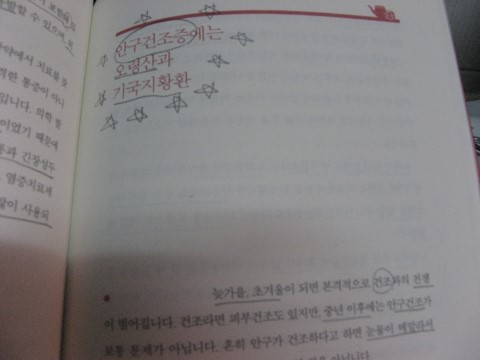 안구건조증에는
오령산과
기국지황환
늦가을, 초겨울이 되면 본격적으로 건조와의 전쟁
이 벌어집니다. 건조라면 피부건조도 있지만, 중년 이후에는 안구건조가
보통 문제가 아닙니다. 흔히 안구가 건조하다고 하면 눈물이 메말라서
아닙니다.
약에서 치료를
통증이 아니
입니다. 의학
이었기 때문에
간장성두
염증치료제
많이 사용되